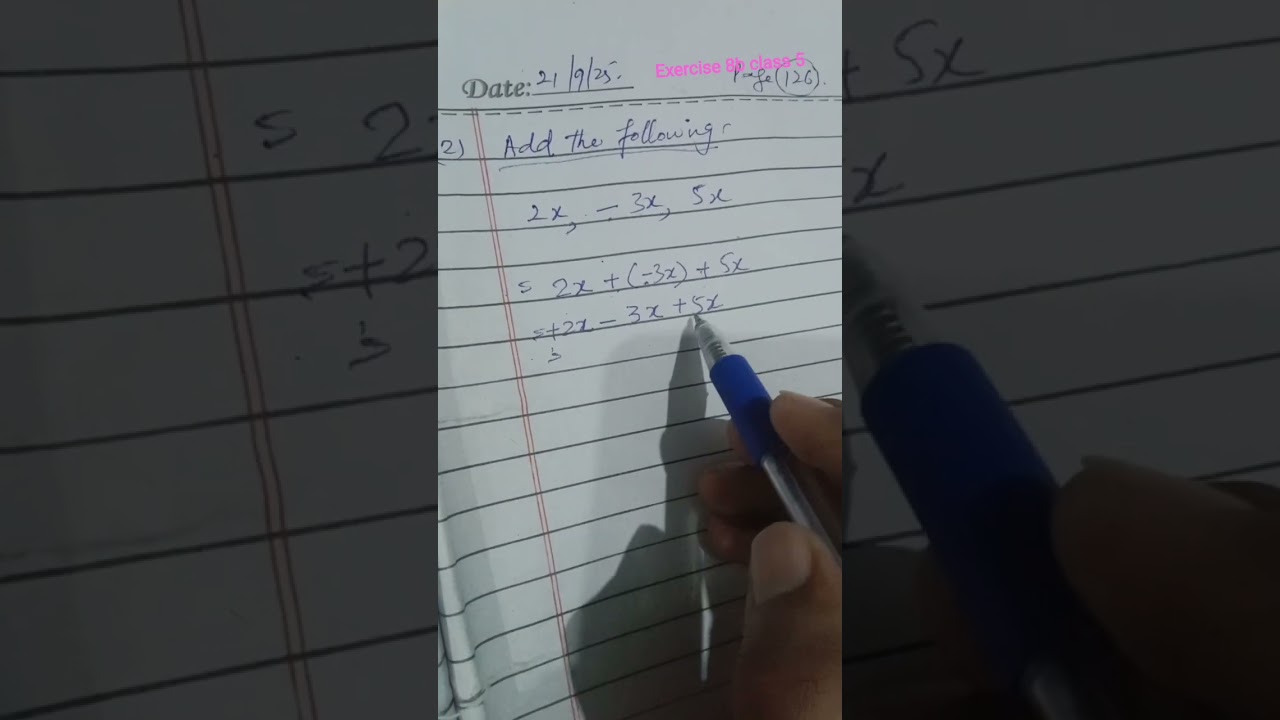 Exercise 8b class 5
Date: 21/9/25. Page (126).
2) Add the following:
2x, - 3x, 5x
= 2x + (-3x) + 5x
= +2x - 3x + 5x